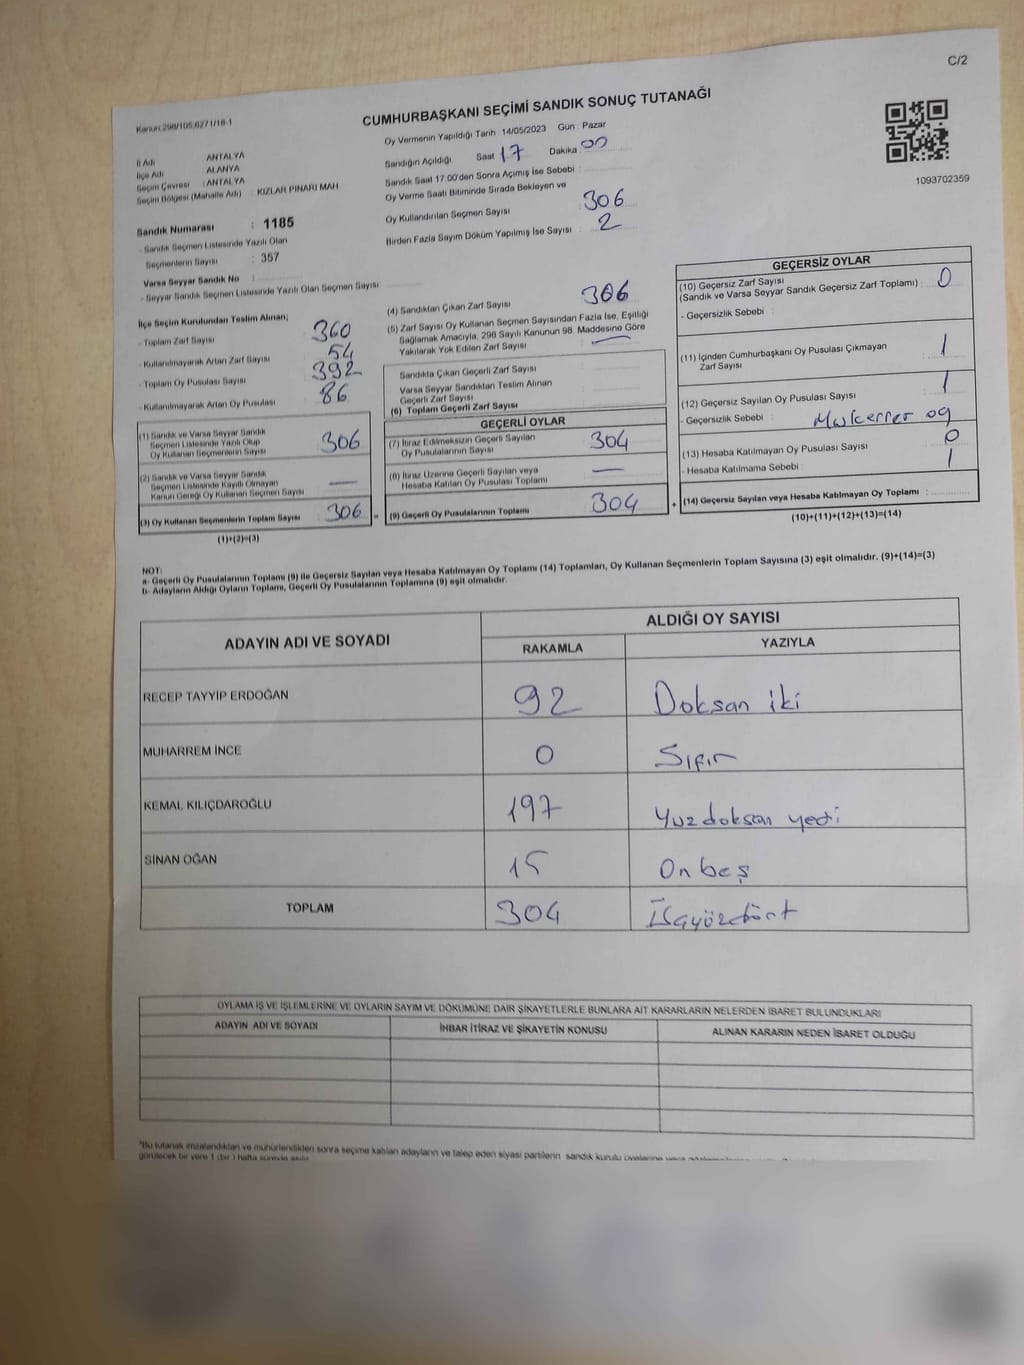 C/2
Kanun:298/105,6271/18-1
CUMHURBAŞKANI SEÇİMİ SANDIK SONUÇ TUTANAĞI
Oy Vermenin Yapıldığı Tarih : 14/05/2023 Gün : Pazar
İl Adı ANTALYA
İlçe Adı ALANYA
Seçim Çevresi : ANTALYA
Seçim Bölgesi (Mahalle Adı) : KIZLAR PINARI MAH
Sandığın Açıldığı Saat 17 Dakika 00
Sandık Saat 17:00'den Sonra Açımış İse Sebebi :
Oy Verme Saati Bitiminde Sırada Bekleyen ve
Oy Kullandırılan Seçmen Sayısı : 306
Birden Fazla Sayım Döküm Yapılmış İse Sayısı : 2
1093702359
Sandık Numarası : 1185
- Sandık Seçmen Listesinde Yazılı Olan
Seçmenlerin Sayısı : 357
Varsa Seyyar Sandık No :
- Seyyar Sandık Seçmen Listesinde Yazılı Olan Seçmen Sayısı :
İlçe Seçim Kurulundan Teslim Alınan;
- Toplam Zarf Sayısı : 360
- Kullanılmayarak Artan Zarf Sayısı : 54
- Toplam Oy Pusulası Sayısı : 392
- Kullanılmayarak Artan Oy Pusulası : 86
(1) Sandık ve Varsa Seyyar Sandık
Seçmen Listesinde Yazılı Olup
Oy Kullanan Seçmenlerin Sayısı : 306
(2) Sandık ve Varsa Seyyar Sandık
Seçmen Listesinde Kayıtlı Olmayan
Kanun Gereği Oy Kullanan Seçmen Sayısı : —
(3) Oy Kullanan Seçmenlerin Toplam Sayısı : 306 =
(1)+(2)=(3)
(4) Sandıktan Çıkan Zarf Sayısı : 306
(5) Zarf Sayısı Oy Kullanan Seçmen Sayısından Fazla İse, Eşitliği
Sağlamak Amacıyla, 298 Sayılı Kanunun 98. Maddesine Göre
Yakılarak Yok Edilen Zarf Sayısı : —
Sandıkta Çıkan Geçerli Zarf Sayısı :
Varsa Seyyar Sandıktan Teslim Alınan
Geçerli Zarf Sayısı :
(6) Toplam Geçerli Zarf Sayısı :
GEÇERLİ OYLAR
(7) İtiraz Edilmeksizin Geçerli Sayılan
Oy Pusulalarının Sayısı : 304
(8) İtiraz Üzerine Geçerli Sayılan veya
Hesaba Katılan Oy Pusulası Toplamı : —
(9) Geçerli Oy Pusulalarının Toplamı : 304 +
GEÇERSİZ OYLAR
(10) Geçersiz Zarf Sayısı
(Sandık ve Varsa Seyyar Sandık Geçersiz Zarf Toplamı) : 0
- Geçersizlik Sebebi :
(11) İçinden Cumhurbaşkanı Oy Pusulası Çıkmayan
Zarf Sayısı : 1
(12) Geçersiz Sayılan Oy Pusulası Sayısı : 1
- Geçersizlik Sebebi : Mukerrer oy
(13) Hesaba Katılmayan Oy Pusulası Sayısı : 0
- Hesaba Katılmama Sebebi : 1
(14) Geçersiz Sayılan veya Hesaba Katılmayan Oy Toplamı :
(10)+(11)+(12)+(13)=(14)
NOT:
a- Geçerli Oy Pusulalarının Toplamı (9) ile Geçersiz Sayılan veya Hesaba Katılmayan Oy Toplamı (14) Toplamları, Oy Kullanan Seçmenlerin Toplam Sayısına (3) eşit olmalıdır. (9)+(14)=(3)
b- Adayların Aldığı Oyların Toplamı, Geçerli Oy Pusulalarının Toplamına (9) eşit olmalıdır.
ADAYIN ADI VE SOYADI
ALDIĞI OY SAYISI
RAKAMLA YAZIYLA
RECEP TAYYİP ERDOĞAN 92 Doksan iki
MUHARREM İNCE 0 Sıfır
KEMAL KILIÇDAROĞLU 197 Yuz doksan yedi
SİNAN OĞAN 15 On beş
TOPLAM 304 Üçyüzdört
OYLAMA İŞ VE İŞLEMLERİNE VE OYLARIN SAYIM VE DÖKÜMÜNE DAİR ŞİKAYETLERLE BUNLARA AİT KARARLARIN NELERDEN İBARET BULUNDUKLARI
ADAYIN ADI VE SOYADI İHBAR İTİRAZ VE ŞİKAYETİN KONUSU ALINAN KARARIN NEDEN İBARET OLDUĞU
*Bu tutanak imzalandıktan ve mühürlendikten sonra seçime katılan adayların ve talep eden siyasi partilerin sandık kurulu üyelerine veya
görülecek bir yere 1 (bir ) hafta